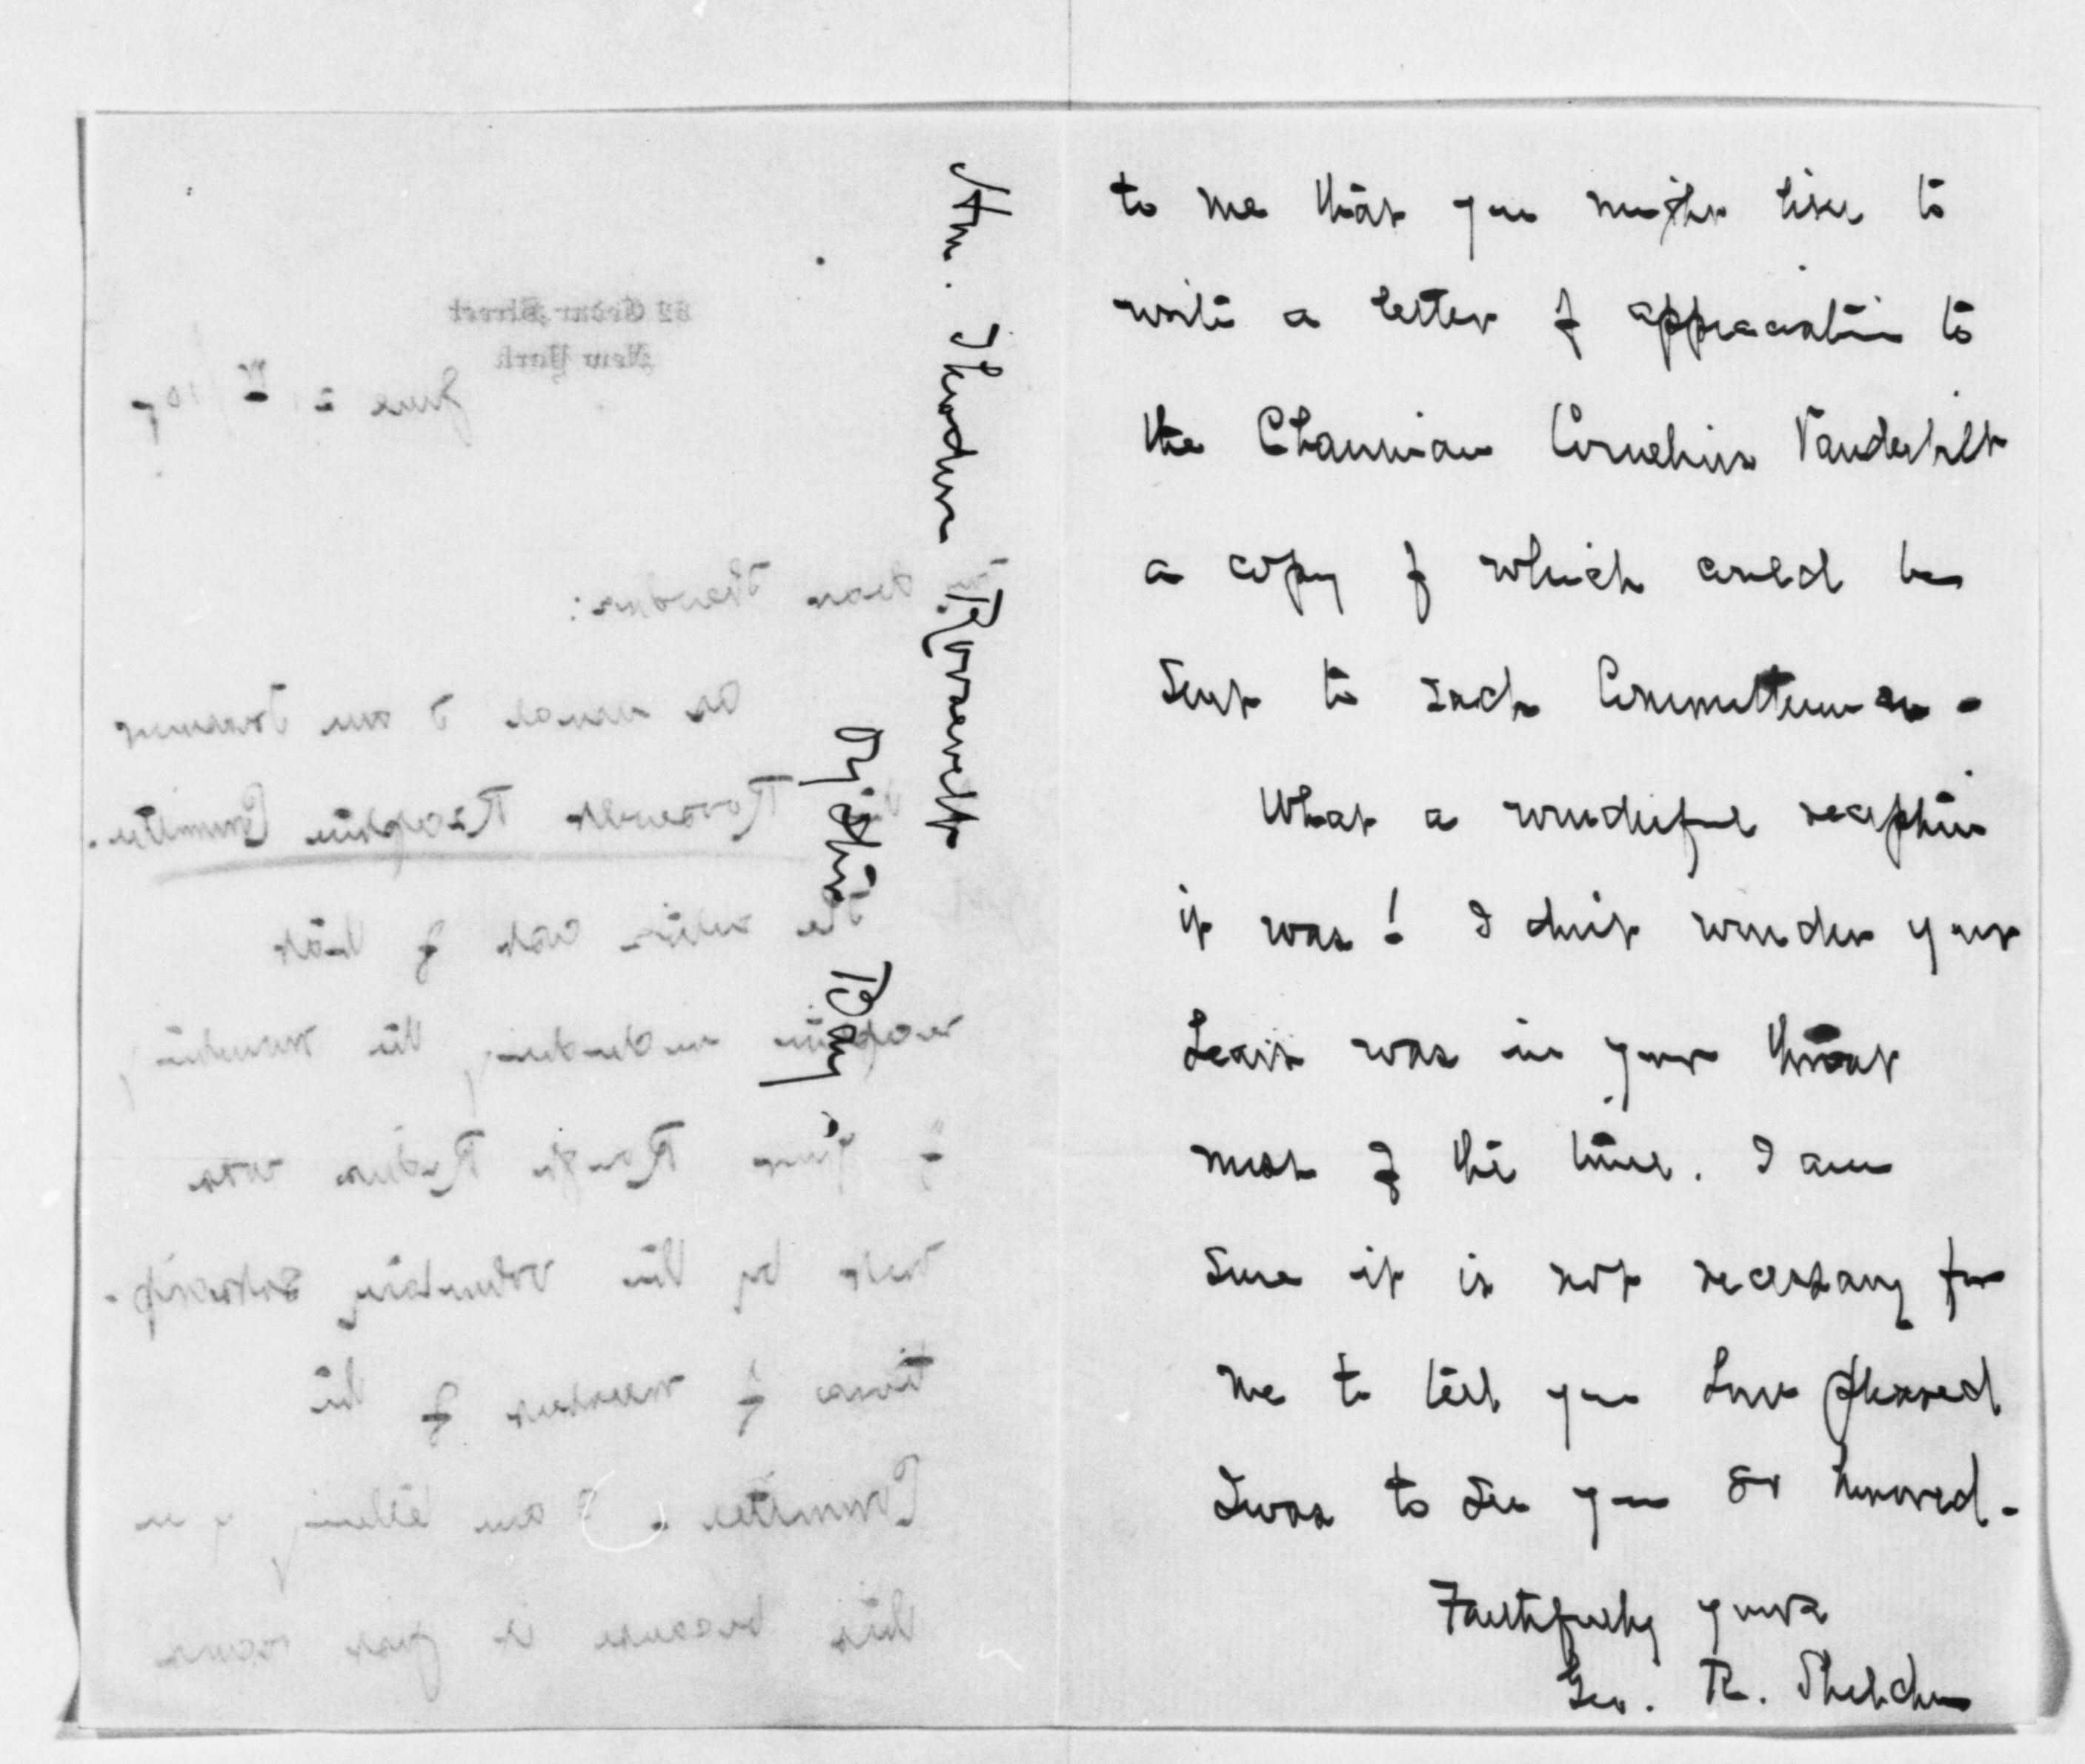 to me that you might like to
write a letter of appreciation to
the Chairman Cornelius Vanderbilt
a copy of which could be
sent to each Committeeman -
What a wonderful reception
it was! I don't wonder your
heart was in your throat
most of the time. I am
sure it is not necessary for
me to tell you how pleased
I was to see you so honored -
Faithfully yours
Geo. R. Sheldon
Hon. Theodore Roosevelt
Oyster Bay.
32 Cedar Street
New York
June 21
Dear Theodore:
As usual I am Treasurer
Roosevelt Reception Committee.
The entire cost of that
reception including the
of your Rough Riders was
met by the voluntary subscrip-
tions of members of the
Committee. I am telling you
this because it just occurs